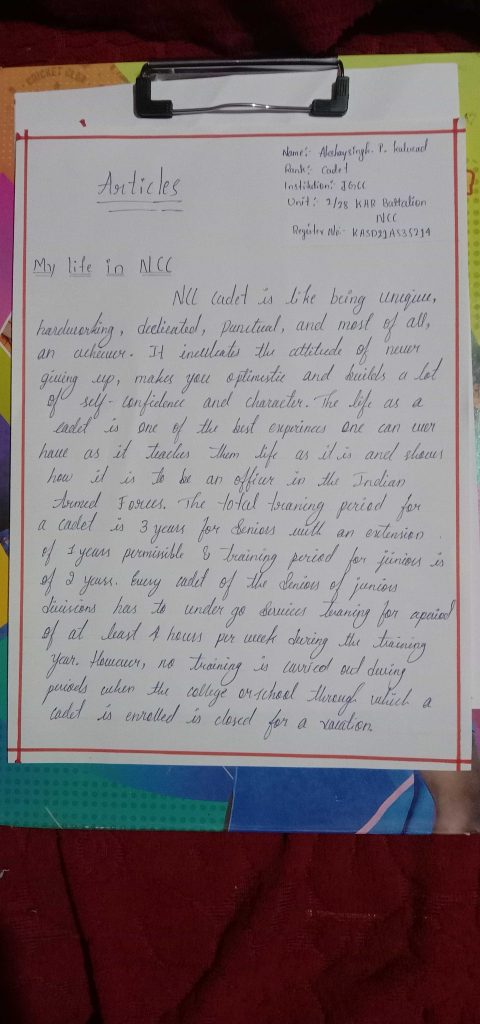 CRICKET CLUB
Name:- Akshaysingh. P.
Rank:- Cadet
Institution: JGCC
Unit: 2/28 KAR Battalion
NCC
Register No:- KASD21AS35214
Articles
My life in NCC
NCC cadet is like being unique,
hardworking, dedicated, Punctual, and most of all,
an achiever. It inculcates the attitude of never
giving up, makes you optimistic and builds a lot
of self-confidence and character. The life as a
cadet is one of the best experinces one can ever
have as it teaches them life as it is and shows
how it is to be an officer in the Indian
Armed Forces. The total traning period for
a cadet is 3 years for Seniors with an extension
of 1 years permisible & training period for juniors is
of 2 years. Every cadet of the Seniors of juniors
divisions has to under go Services traning for a period
of at least 4 hours per week during the training
year. However, no training is carried out during
periods when the college or school through which a
cadet is enrolled is closed for a vacation.